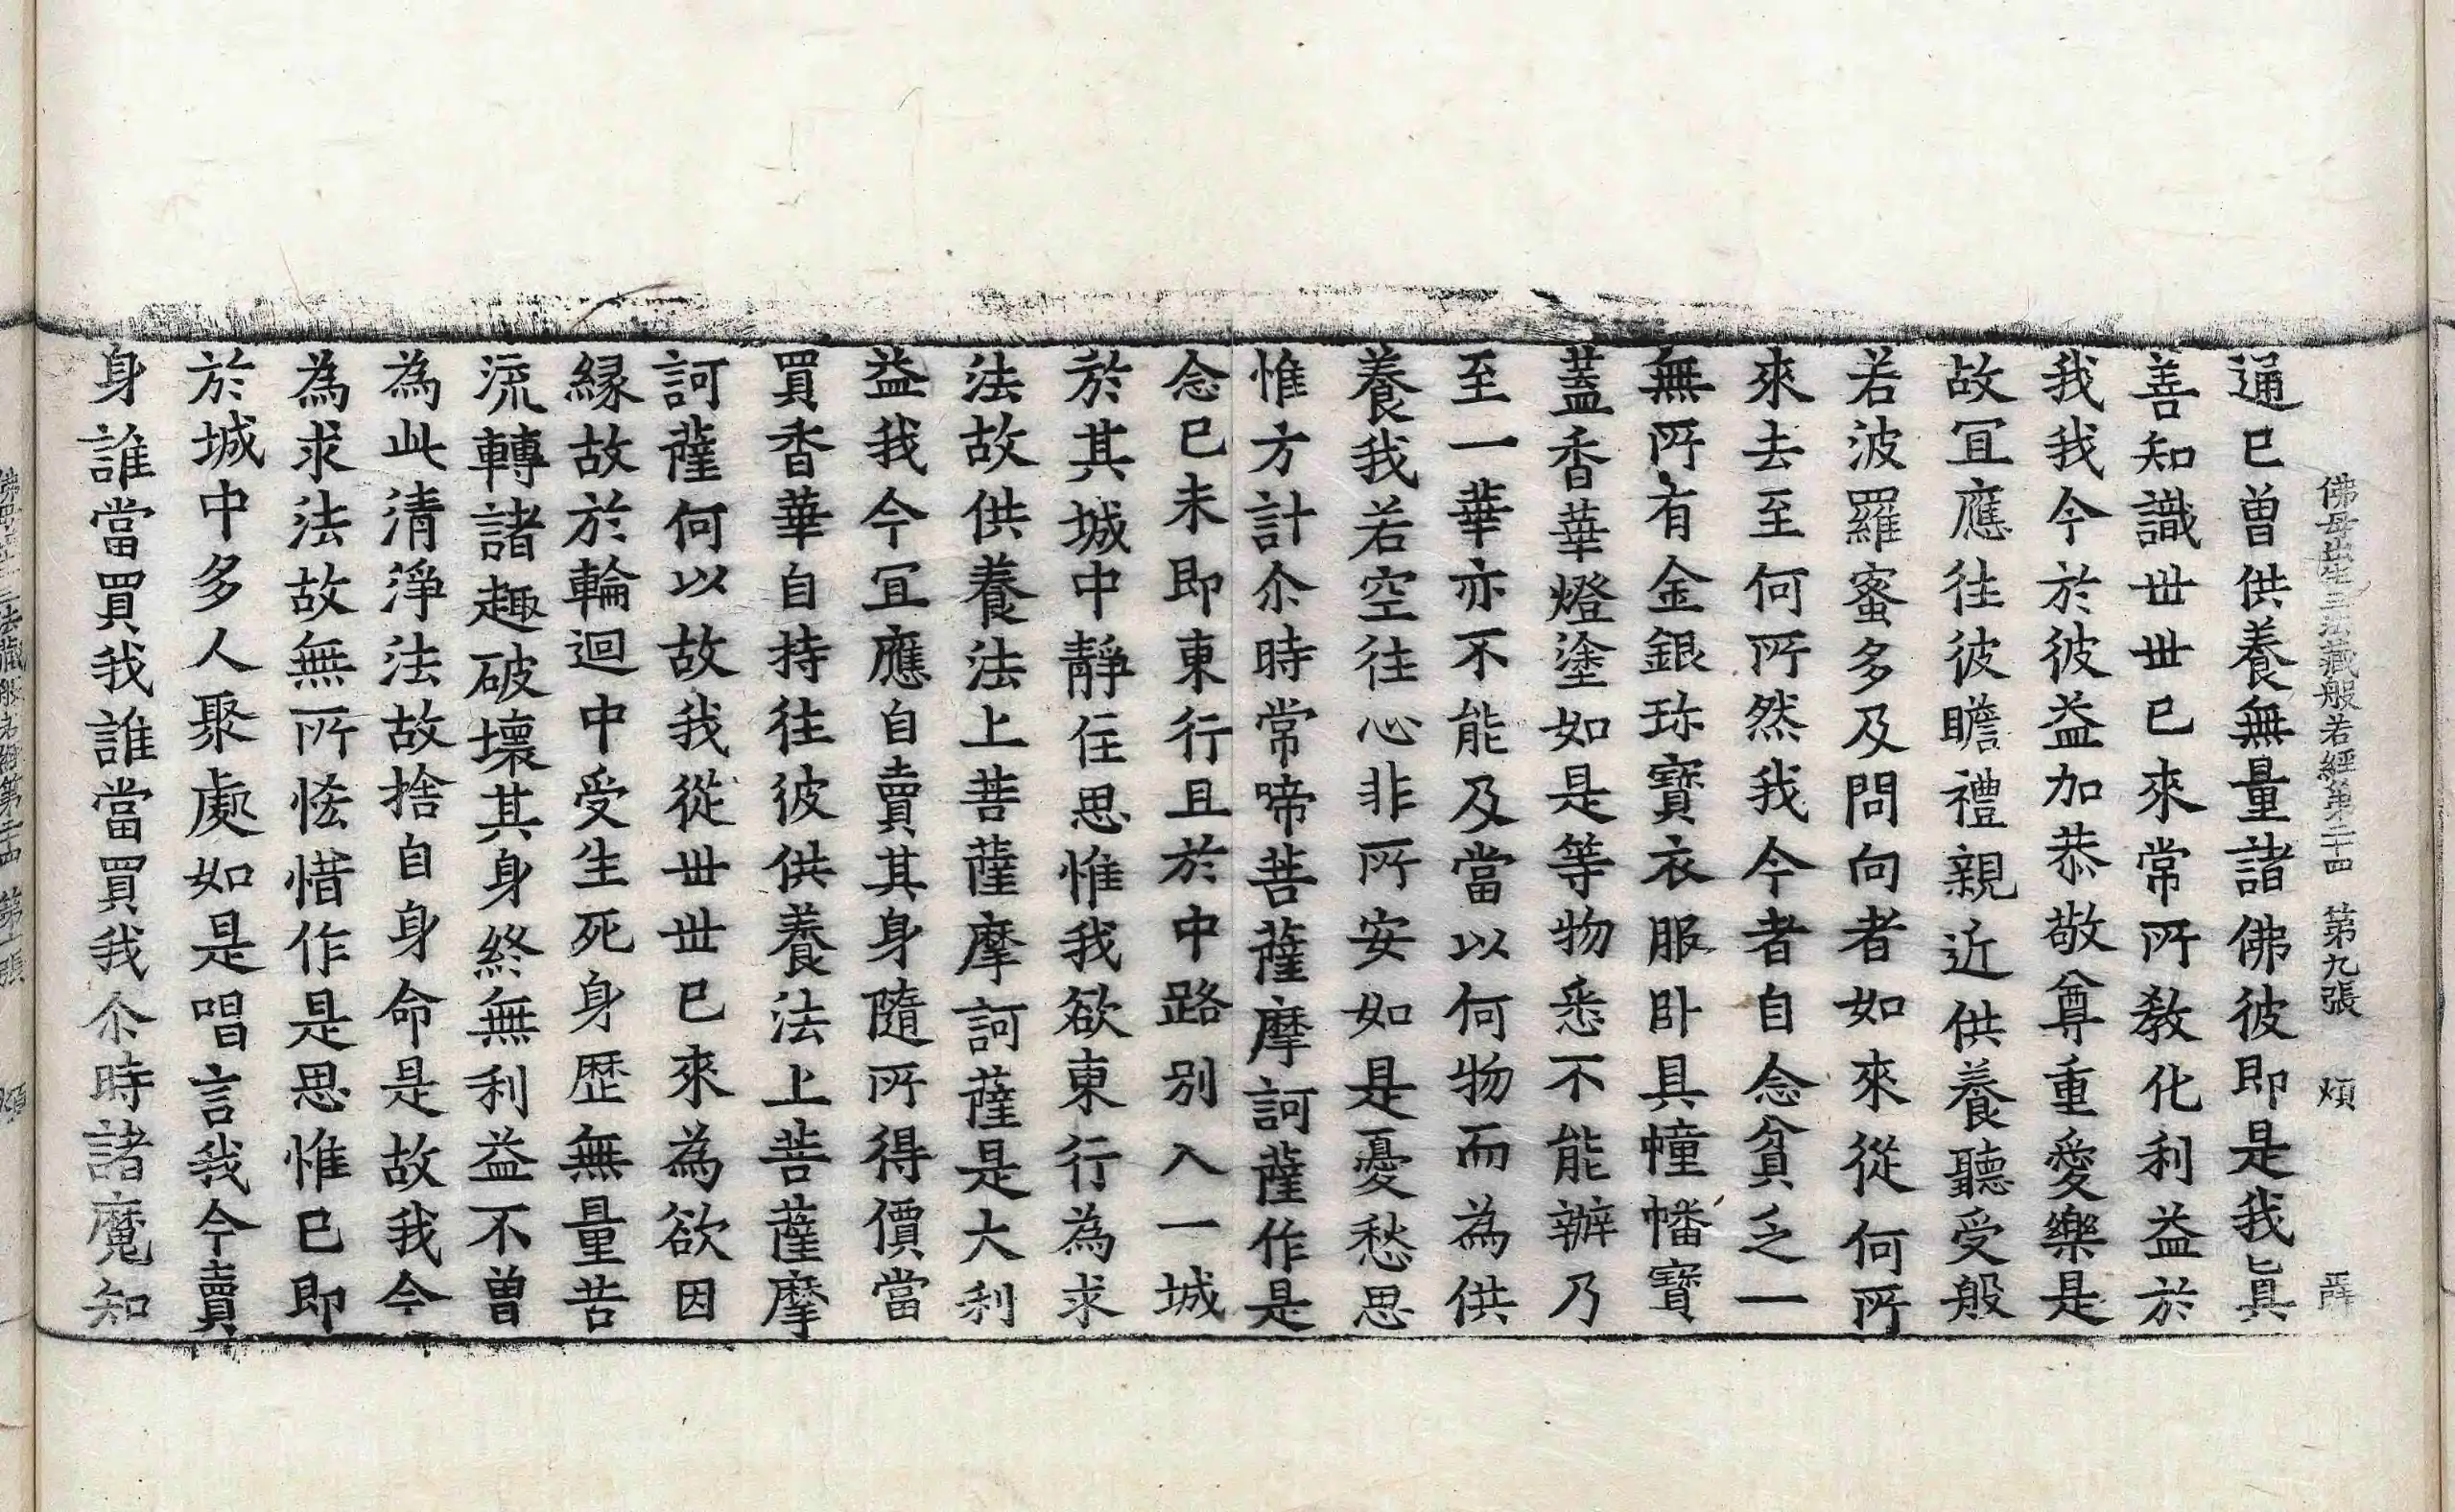 佛母出生三法藏般若經第二十四 第九張 煩
通已曾供養無量諸佛彼即是我眞
善知識世世已來常所教化利益於
我我今於彼益加恭敬尊重愛樂是
故冝應往彼瞻禮親近供養聽受般
若波羅蜜多及問向者如來從何所
來去至何所然我今者自念貧乏一
無所有金銀珎寶衣服卧具幢幡寶
蓋香華燈塗如是等物悉不能辦乃
至一華亦不能及當以何物而為供
養我若空往心非所安如是憂愁思
惟方計尒時常啼菩薩摩訶薩作是
念已未即東行且於中路別入一城
於其城中靜住思惟我欲東行為求
法故供養法上菩薩摩訶薩是大利
益我今冝應自賣其身隨所得價當
買香華自持往彼供養法上菩薩摩
訶薩何以故我從世世已來為欲因
縁故於輪迴中受生死身歷無量苦
流轉諸趣破壞其身終無利益不曾
為此清淨法故捨自身命是故我今
為求法故無所恡惜作是思惟已即
於城中多人聚處如是唱言我今賣
身誰當買我誰當買我尒時諸魔知